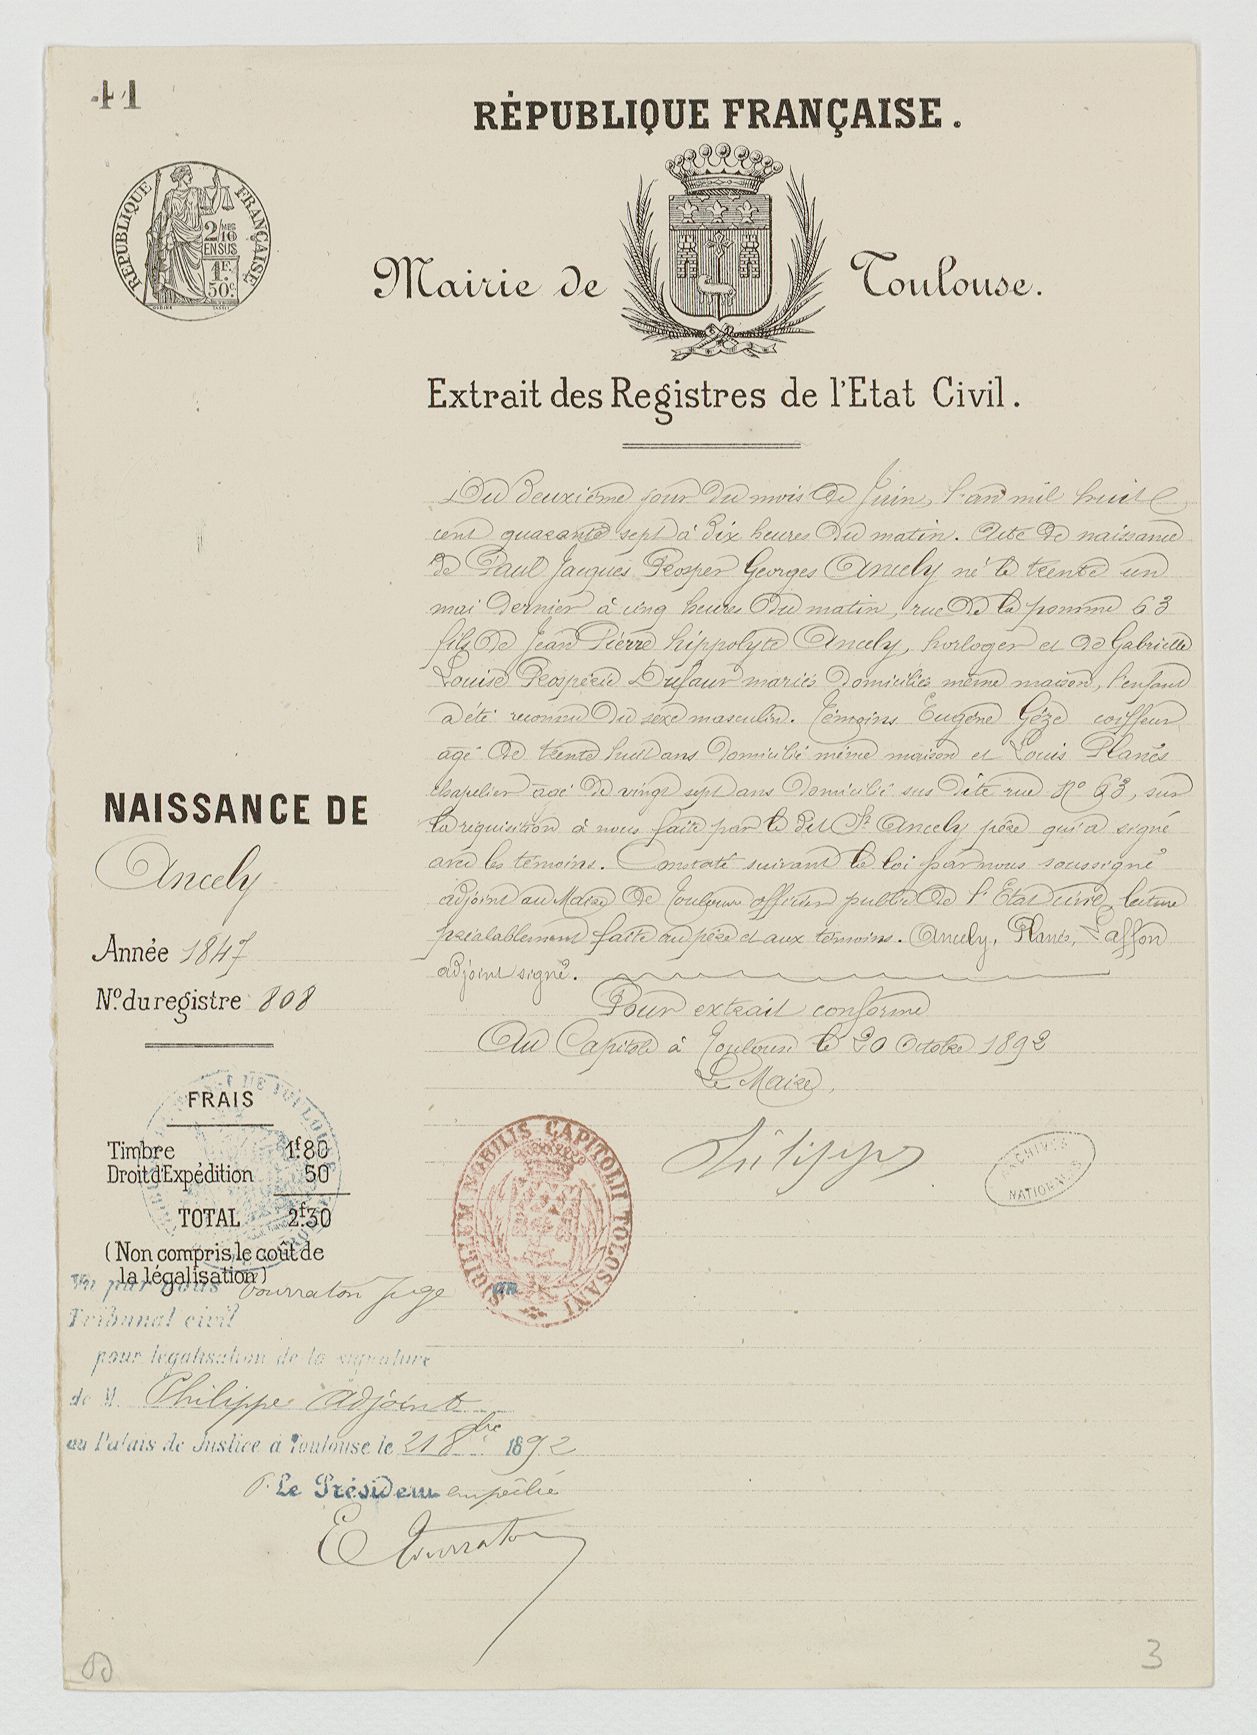 41
RÉPUBLIQUE FRANÇAISE.
RÉPUBLIQUE FRANÇAISE
2/10 MES
EN SUS
1F.
50c
Mairie de Toulouse.
Extrait des Registres de l'Etat Civil.
Du deuxième jour du mois de Juin, l'an mil huit
cent quarante sept à dix heures du matin. Acte de naissance
de Paul Jacques Prosper Georges Ancely né le trente un
mai dernier à cinq heures du matin, rue de la pomme 63
fils de Jean Pierre hippolyte Ancely, horloger et de Gabrielle
Louise Prospérie Dufaur mariés domiciliés même maison, l'enfant
a été reconnu du sexe masculin. Témoins Eugène Gèze coiffeur
agé de trente huit ans domicilié même maison et Louis Planès
chapelier agé de vingt sept ans domicilié sus dite rue No 63, sur
la requisition à nous faite par le dit Sr Ancely père qui a signé
avec les témoins. Constaté suivant la loi par nous soussigné
adjoint au Maire de Toulouse officier public de l'Etat civil, lecture
préalablement faite au père et aux témoins. Ancely, Planès, Laffon
adjoint signé.
Pour extrait conforme
Au Capitole à Toulouse le 20 Octobre 1892
Le Maire,
Philippe
NAISSANCE DE
Ancely
Année 1847
No. du registre 808
FRAIS
Timbre 1f.80
Droit d'Expédition 50
TOTAL 2f.30
(Non compris le coût de
la légalisation)
SIGILLUM NOBILIS CAPITOLII TOLOSANI
ARCHIVES
NATIONALES
Vu par nous Tourraton Juge
Tribunal civil
pour légalisation de la signature
de M. Philippe adjoint
au Palais de Justice à Toulouse le 21 8bre 1892
P. Le Président empêché
E Tourraton
3